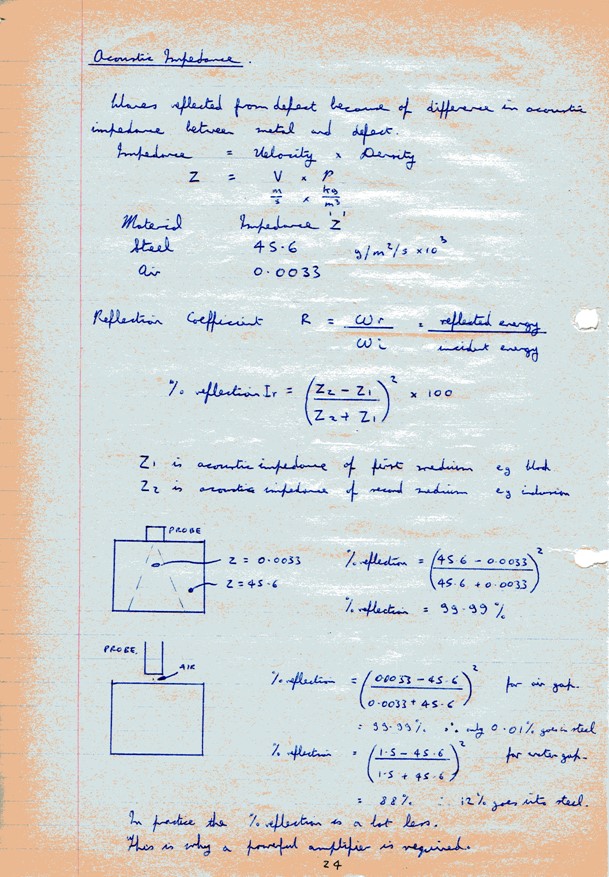 Acoustic Impedance.
Waves reflected from defect because of difference in acoustic
impedance between metal and defect.
Impedance = Velocity × Density
Z = V × P
m/s × kg/m³
Material Impedance 'Z'
Steel 45.6 g/m²/s ×10³
Air 0.0033
Reflection Coefficient R = ωr / ωi = reflected energy / incident energy
% reflection Ir = ((Z2 − Z1) / (Z2 + Z1))² × 100
Z1 is acoustic impedance of first medium eg block
Z2 is acoustic impedance of second medium eg inclusion
PROBE
Z = 0.0033
Z = 45.6
% reflection = ((45.6 − 0.0033) / (45.6 + 0.0033))²
% reflection = 99.99 %
PROBE.
AIR
% reflection = ((0.0033 − 45.6) / (0.0033 + 45.6))² for air gap.
= 99.99% ∴ only 0.01% goes in steel
% reflection = ((1.5 − 45.6) / (1.5 + 45.6))² for water gap.
= 88% ∴ 12% goes into steel.
In practice the % reflection is a lot less.
This is why a powerful amplifier is required.
24